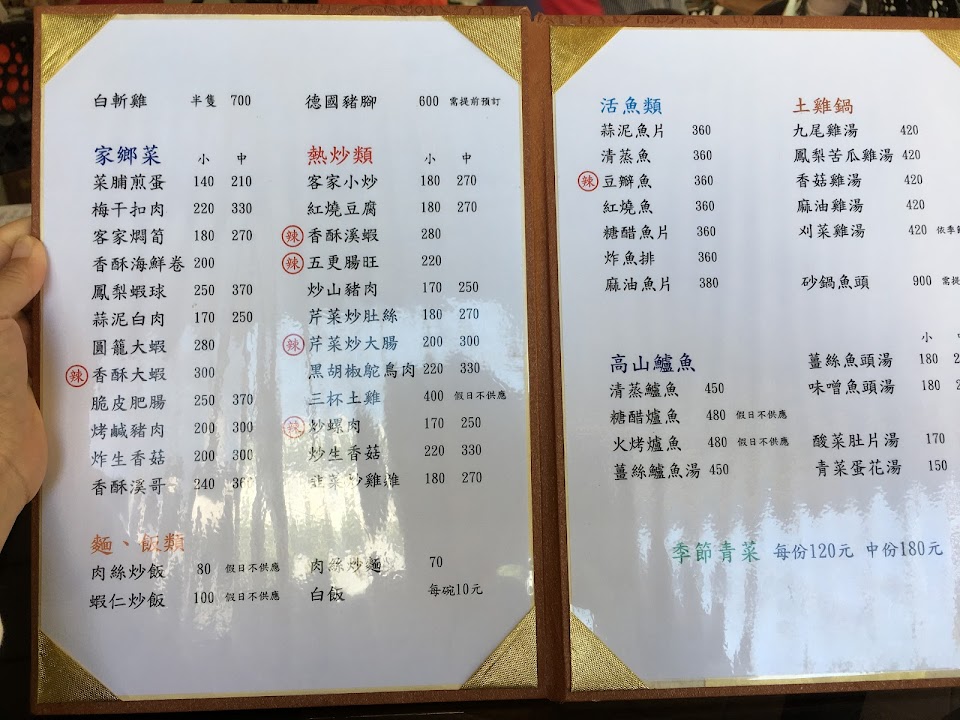 白斬雞 半隻 700
家鄉菜 小 中
菜脯煎蛋 140 210
梅干扣肉 220 330
客家燜筍 180 270
香酥海鮮卷 200
鳳梨蝦球 250 370
蒜泥白肉 170 250
圓籠大蝦 280
辣 香酥大蝦 300
脆皮肥腸 250 370
烤鹹豬肉 200 300
炸生香菇 200 300
香酥溪哥 240 360
麵、飯類
肉絲炒飯 80 假日不供應
蝦仁炒飯 100 假日不供應
德國豬腳 600 需提前預訂
熱炒類 小 中
客家小炒 180 270
紅燒豆腐 180 270
辣 香酥溪蝦 280
辣 五更腸旺 220
炒山豬肉 170 250
芹菜炒肚絲 180 270
辣 芹菜炒大腸 200 300
黑胡椒鴕鳥肉 220 330
三杯土雞 400 假日不供應
辣 炒螺肉 170 250
炒生香菇 220 330
韭菜炒雞雜 180 270
肉絲炒麵 70
白飯 每碗10元
活魚類
蒜泥魚片 360
清蒸魚 360
辣 豆瓣魚 360
紅燒魚 360
糖醋魚片 360
炸魚排 360
麻油魚片 380
高山鱸魚
清蒸鱸魚 450
糖醋鱸魚 480 假日不供應
火烤鱸魚 480 假日不供應
薑絲鱸魚湯 450
土雞鍋
九尾雞湯 420
鳳梨苦瓜雞湯 420
香菇雞湯 420
麻油雞湯 420
刈菜雞湯 420 依季節
砂鍋魚頭 900 需提
小 中
薑絲魚頭湯 180
味噌魚頭湯 180
酸菜肚片湯 170
青菜蛋花湯 150
季節青菜 每份120元 中份180元